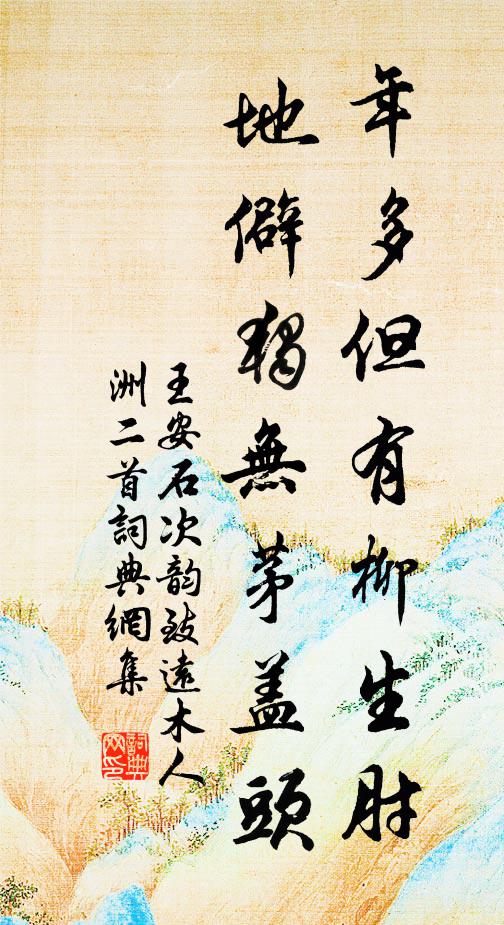 年多但有柳生肘
地僻獨無茅盖頭
王安石次韵致遠木人
洲二首詞典網集
詞典網印